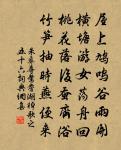 屋上鳩鳴谷雨開
橫塘游女蕩舟回
桃花落後蠶齊浴
竹筍抽時燕便來
朱彝尊鴛鴦湖棹歌之
五十六詞典網集